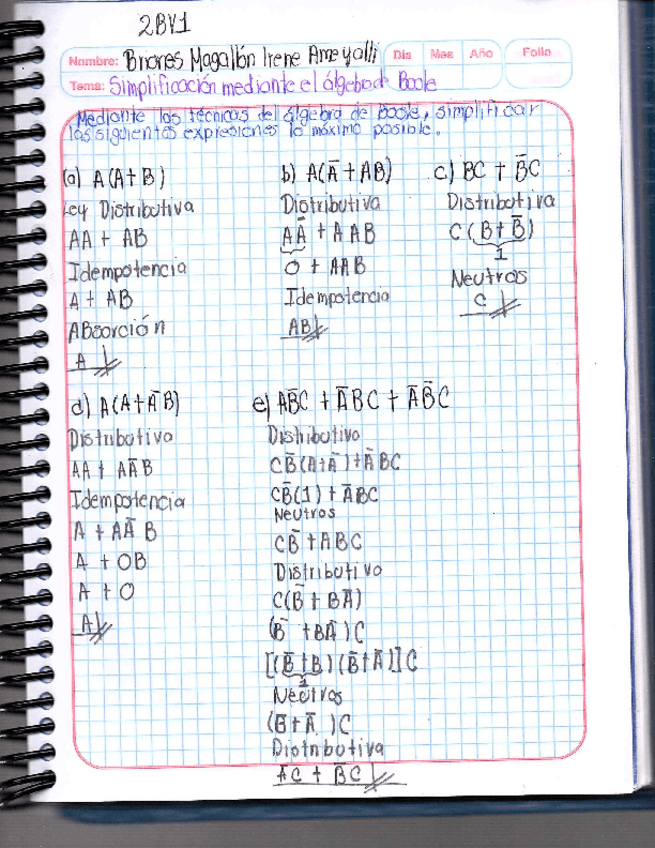 2BV1
Nombre: Briones Magallón Irene Ameyalli Día Mes Año Folio
Tema: Simplificación mediante el álgebra de Boole
Mediante las técnicas del álgebra de Boole, simplificar
las siguientes expresiones lo máximo posible.
(a) A(A+B)
Ley Distributiva
AA + AB
Idempotencia
A + AB
Absorción
A
b) A(Ā + AB)
Distributiva
AĀ + AAB
0 + AAB
Idempotencia
AB
c) BC + B̄C
Distributiva
C(B+B̄)
1
Neutros
C
d) A(A+ĀB)
Distributiva
AA + AĀB
Idempotencia
A + AĀ B
A + 0B
A + 0
A
e) AB̄C + ĀBC + ĀB̄C
Distributiva
CB̄(A+Ā)+ĀBC
CB̄(1) + ĀBC
Neutros
CB̄ + ABC
Distributiva
C(B̄ + BĀ)
(B̄ + BĀ)C
[(B̄+B)(B̄+Ā)]C
1
Neutros
(B̄+Ā)C
Distributiva
ĀC + B̄C